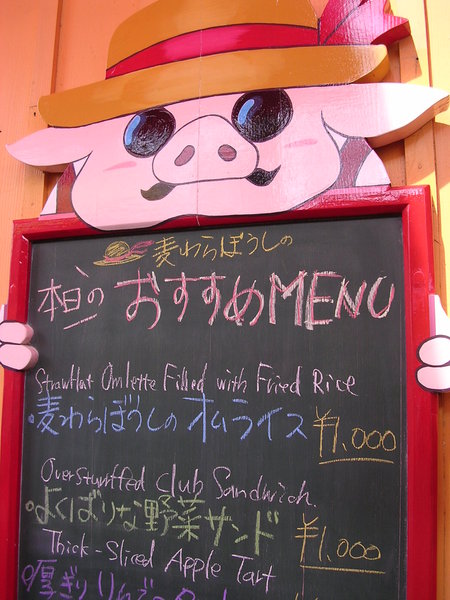 麦わらぼうしの
本日の おすすめMENU
StrawHat Omlette Filled with Fried Rice
・麦わらぼうしのオムライス ¥1,000
Overstuffed Club Sandwich.
・よくばりな野菜サンド ¥1,000
Thick-Sliced Apple Tart
・厚ぎりりんごの